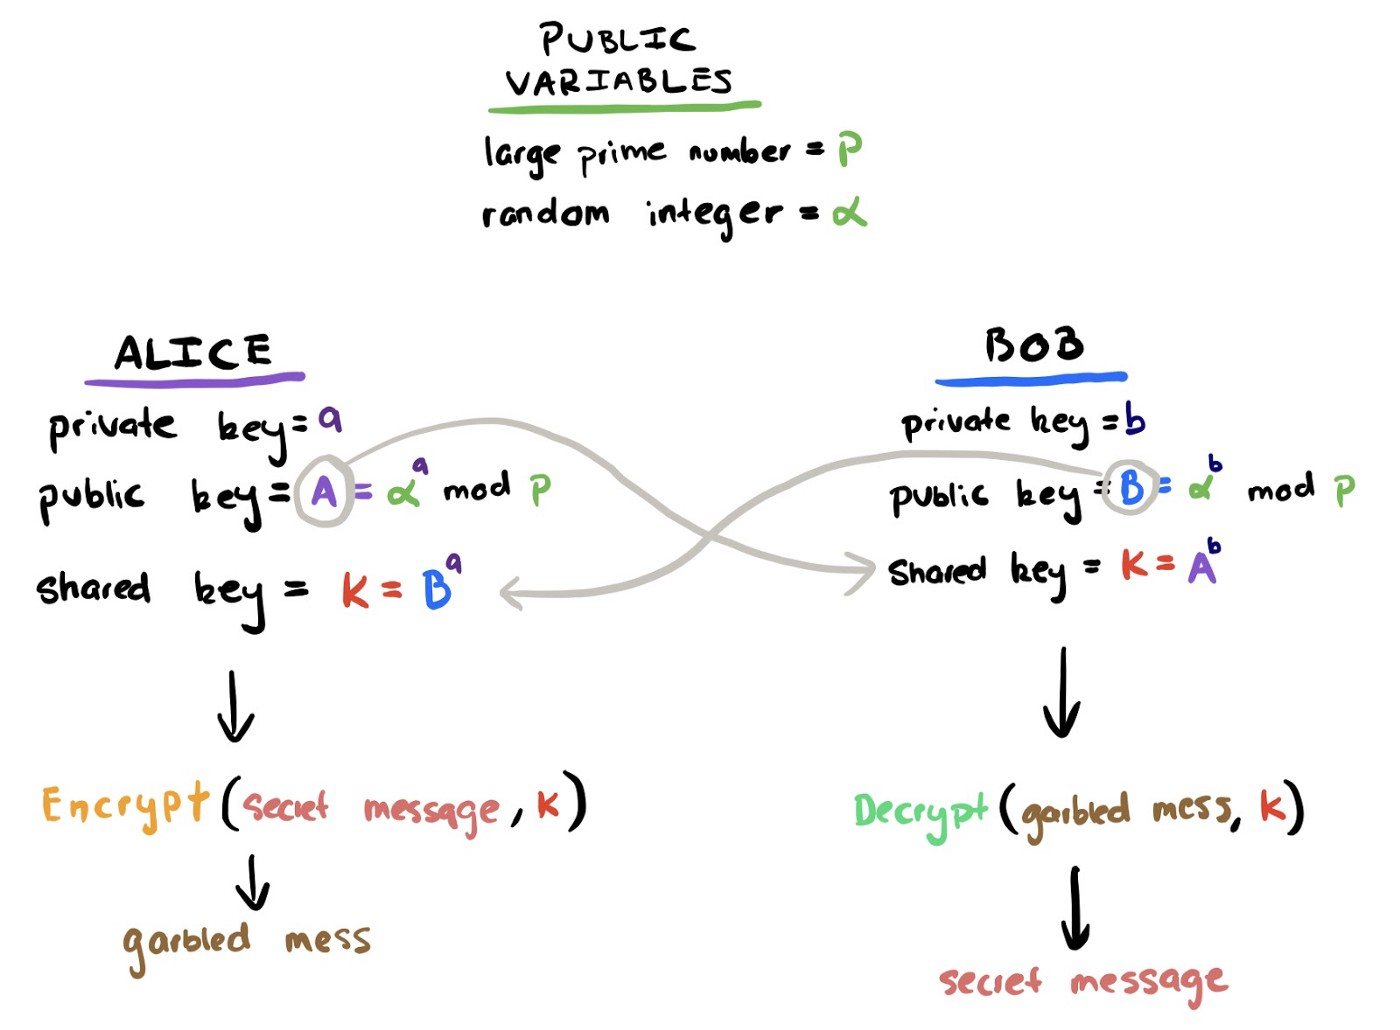 PUBLIC
VARIABLES
large prime number = P
random integer = α
ALICE
private key = a
public key = A = α^a mod P
shared key = K = B^a
Encrypt (secret message, K)
garbled mess
BOB
private key = b
public key = B = α^b mod P
shared key = K = A^b
Decrypt (garbled mess, K)
secret message